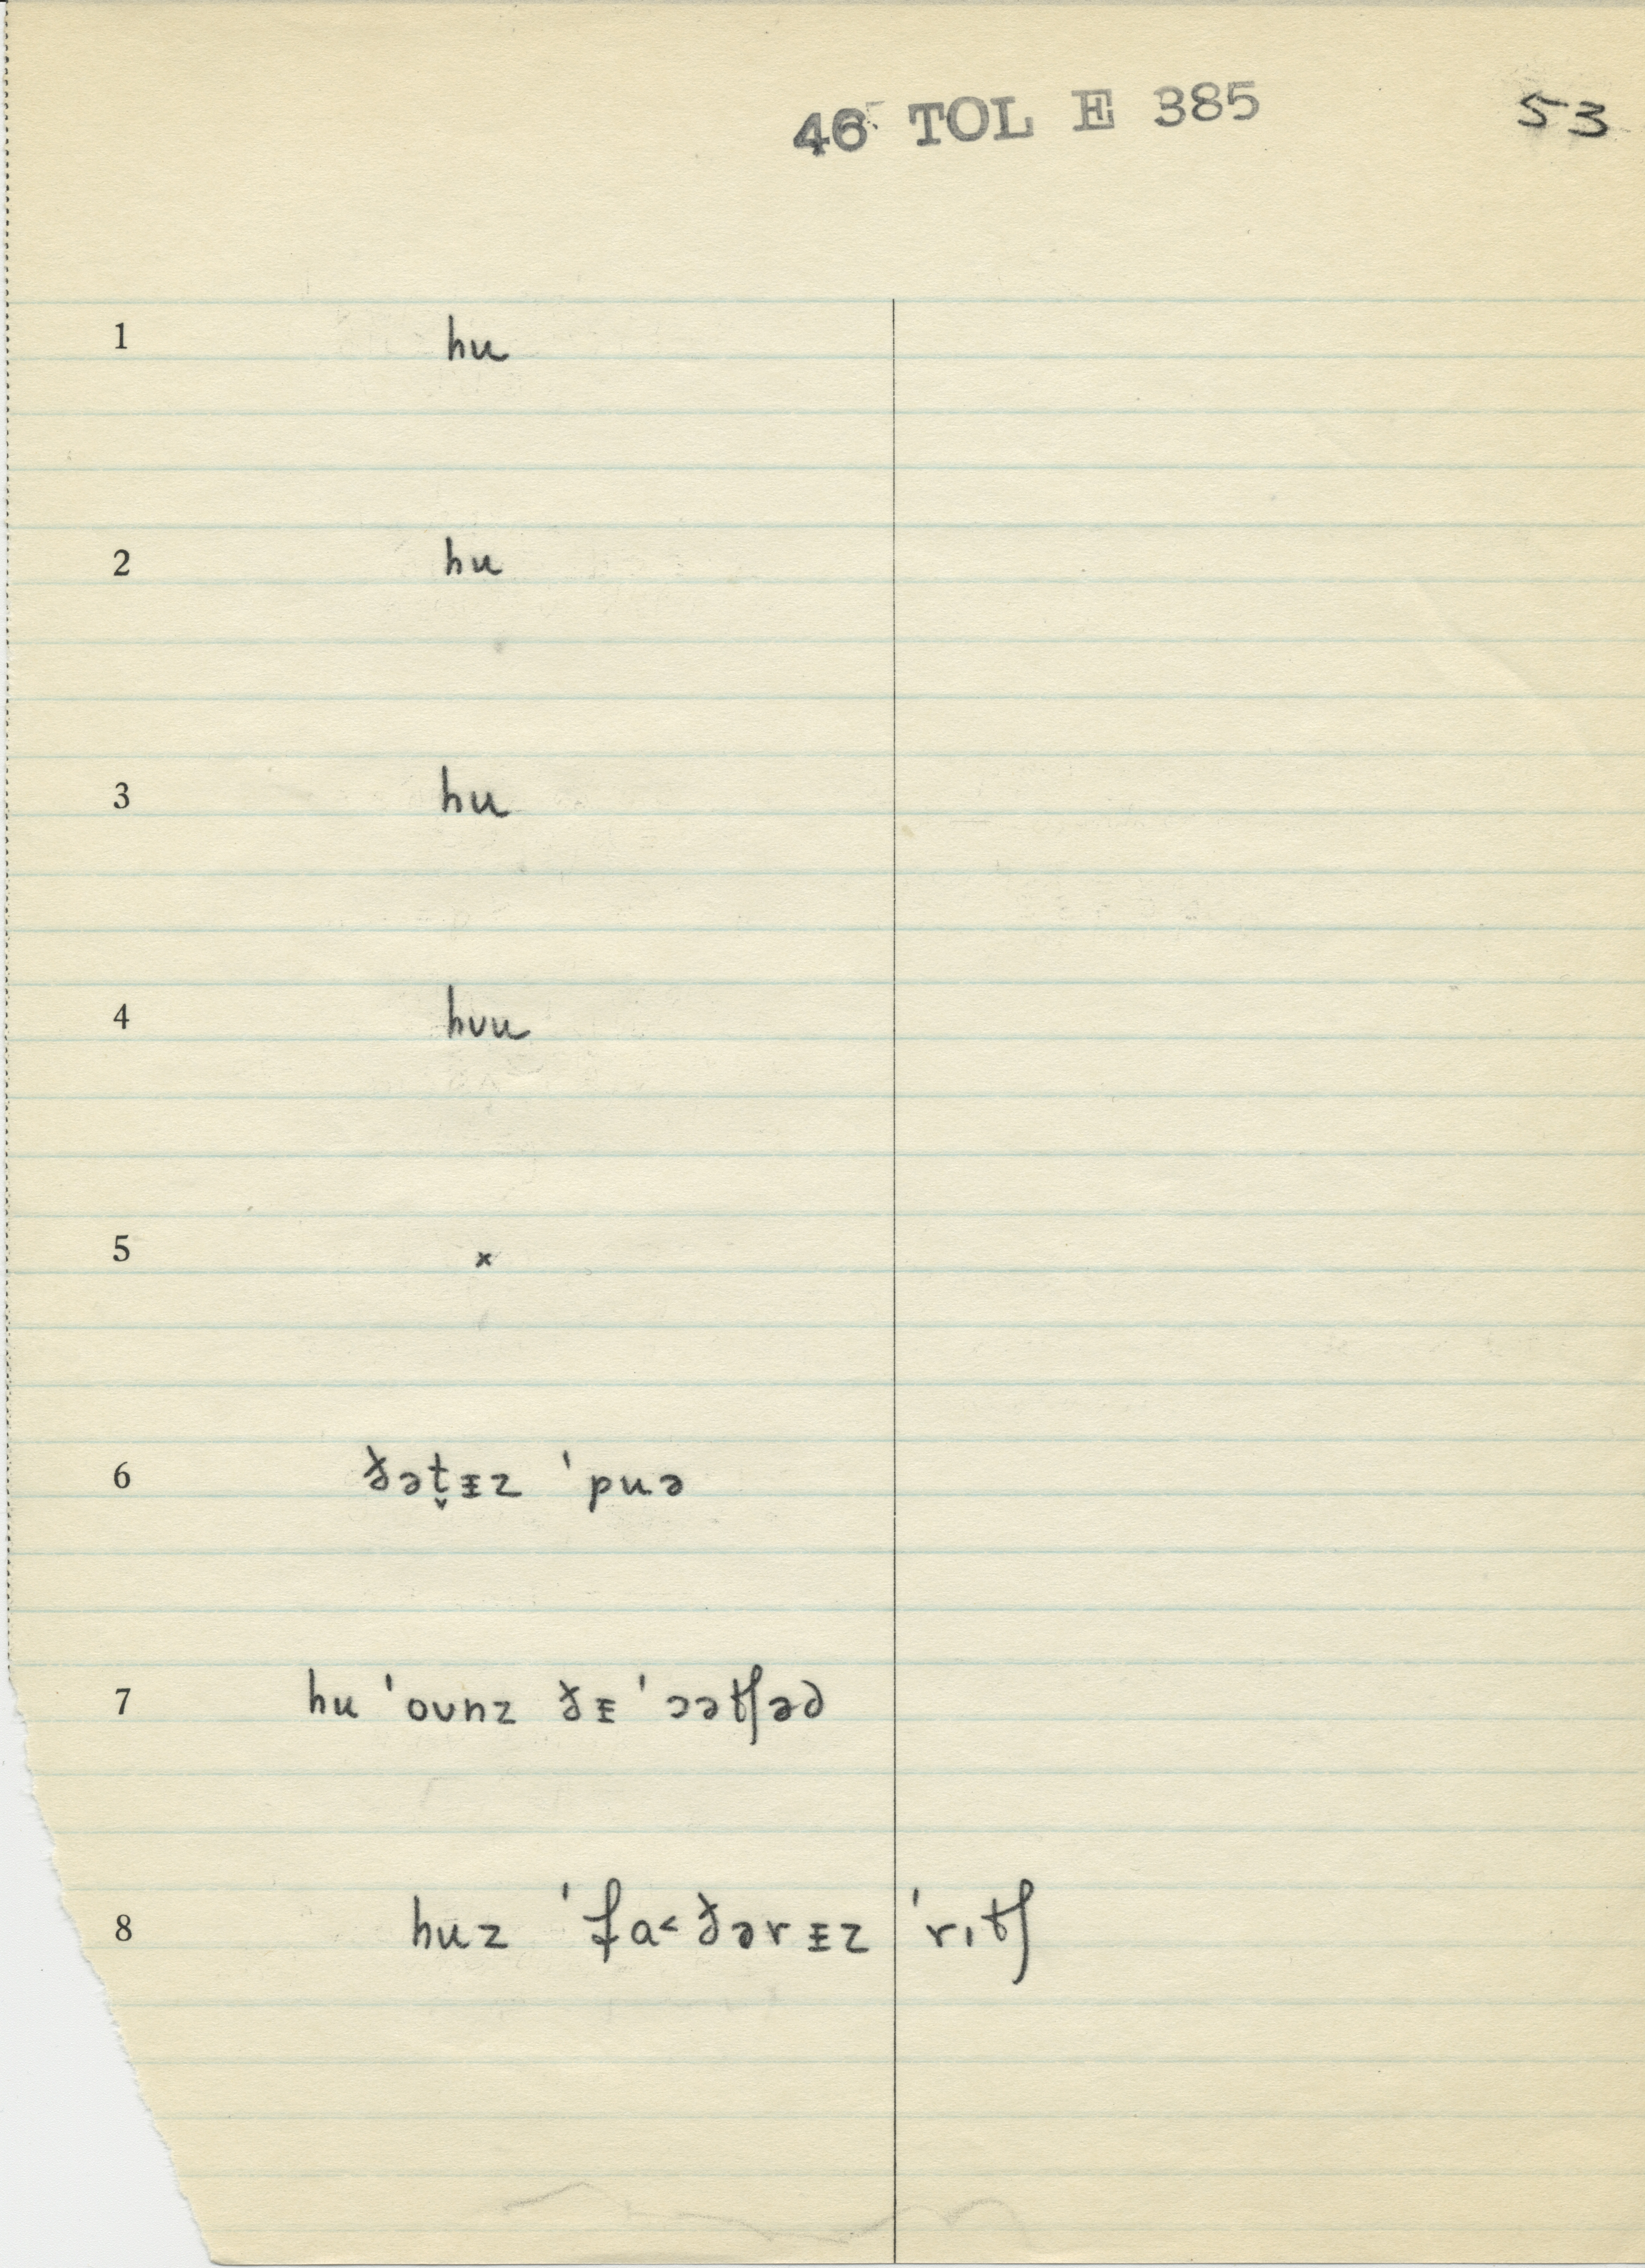 46 TOL E 385 53
1 hu
2 hu
3 hu
4 hʊu
5 ×
6 ðət̬ᵻz ˈpuə
7 hu ˈoʊnz ðᵻ ˈɔətʃəd
8 huz ˈfa˂ðərᵻz ˈrɪtʃ